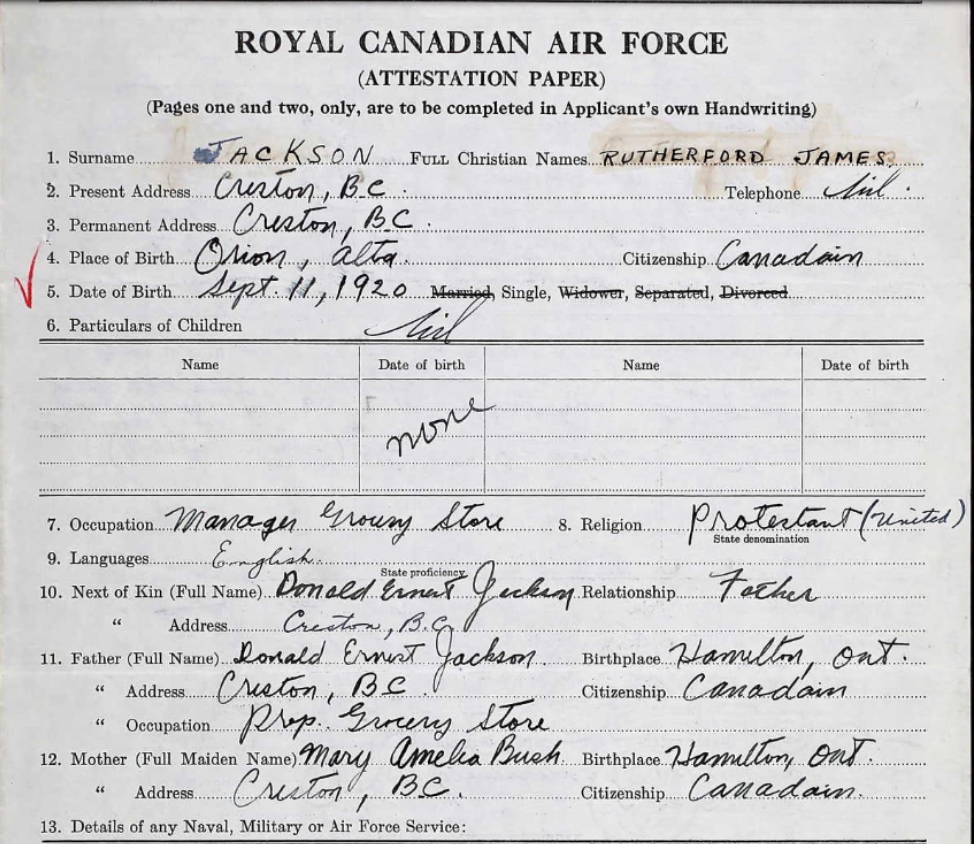 ROYAL CANADIAN AIR FORCE
(ATTESTATION PAPER)
(Pages one and two, only, are to be completed in Applicant's own Handwriting)
1. Surname JACKSON FULL Christian Names RUTHERFORD JAMES
2. Present Address Creston, B.C. Telephone Nil.
3. Permanent Address Creston, B.C.
4. Place of Birth Orion, Alta. Citizenship Canadain
5. Date of Birth Sept. 11, 1920 Married, Single, Widower, Separated, Divorced
6. Particulars of Children Nil
Name Date of birth Name Date of birth
none
7. Occupation Manager Grocery Store 8. Religion Protestant (United)
State denomination
9. Languages English.
State proficiency
10. Next of Kin (Full Name) Donald Ernest Jackson Relationship Father
" Address Creston, B.C.
11. Father (Full Name) Donald Ernest Jackson Birthplace Hamilton, Ont.
" Address Creston, BC. Citizenship Canadain
" Occupation Prop. Grocery Store
12. Mother (Full Maiden Name) Mary Amelia Bush Birthplace Hamilton, Ont.
" Address Creston, BC. Citizenship Canadain.
13. Details of any Naval, Military or Air Force Service: